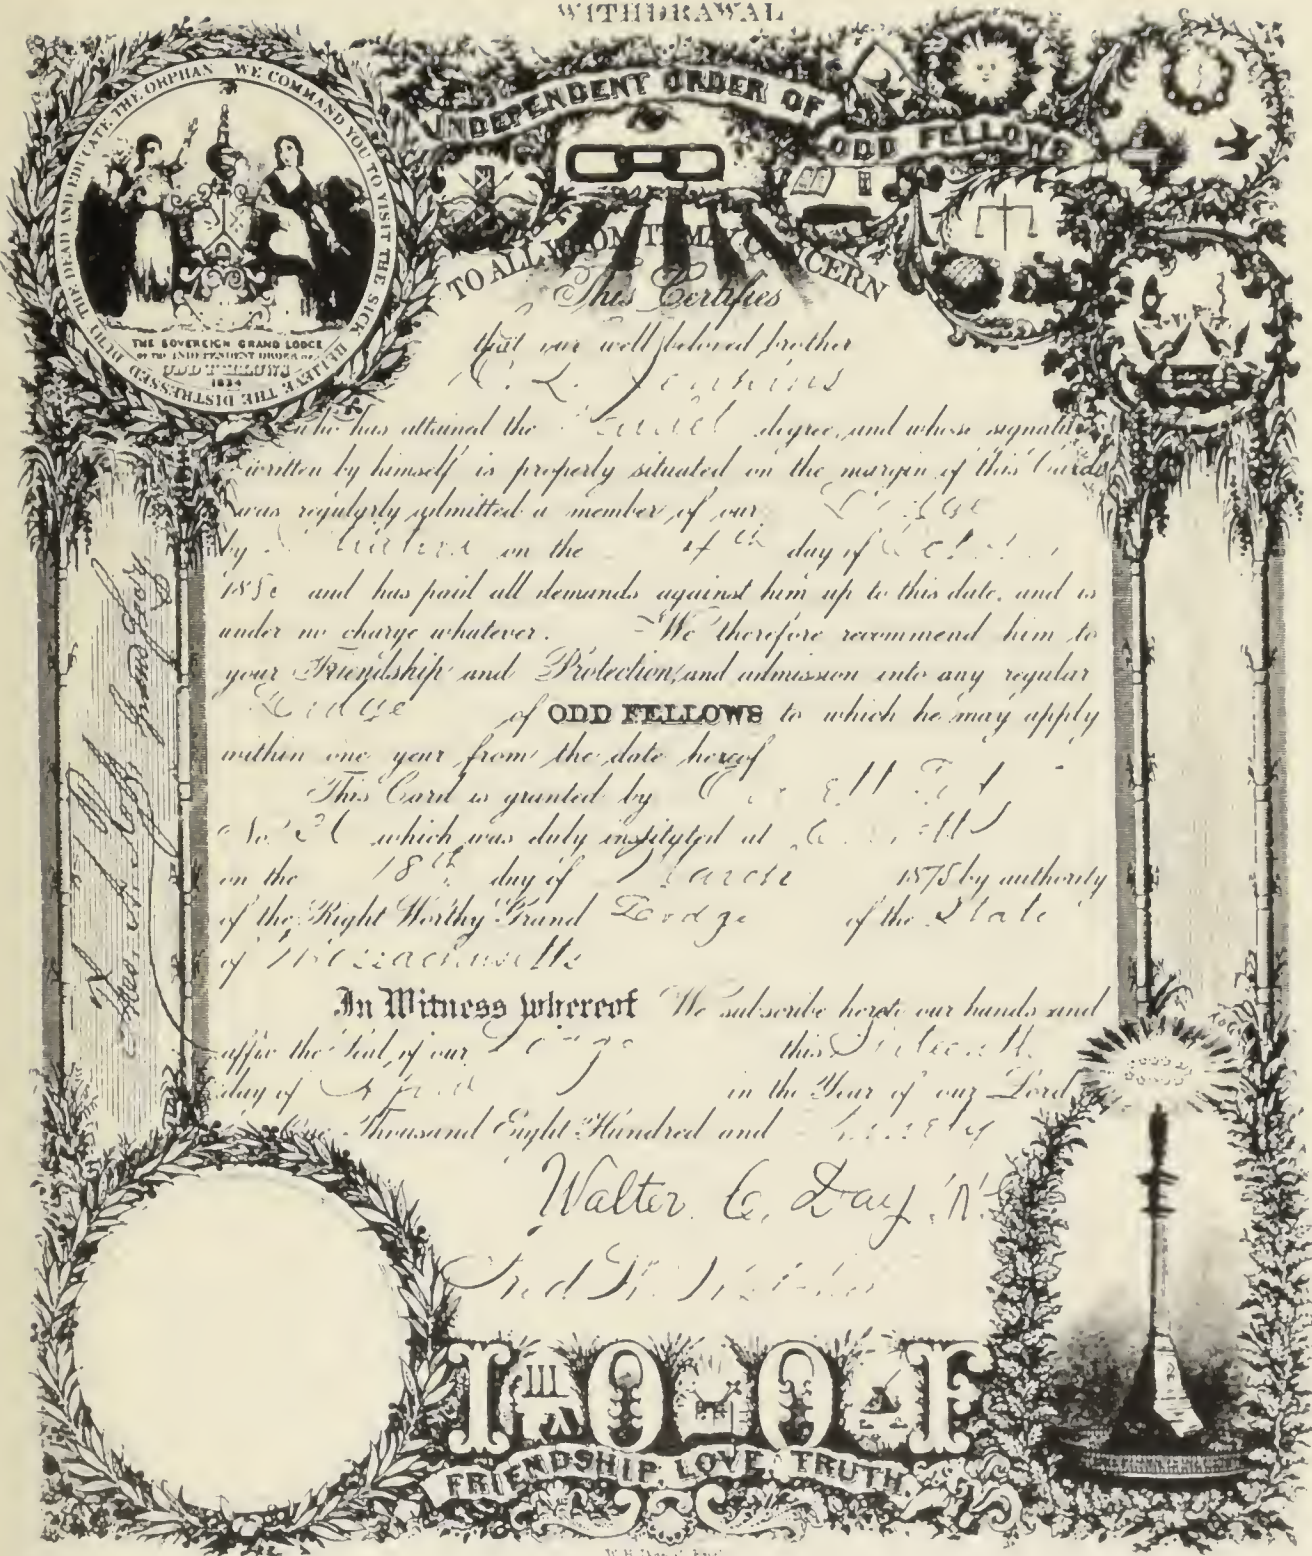 WITHDRAWAL
INDEPENDENT ORDER OF
ODD FELLOWS
WE COMMAND YOU TO VISIT THE SICK RELIEVE THE DISTRESSED BURY THE DEAD AND EDUCATE THE ORPHAN
THE SOVEREIGN GRAND LODGE
OF THE INDEPENDENT ORDER OF
ODD FELLOWS
1834
TO ALL WHOM IT MAY CONCERN
This Certifies
that our well beloved brother
L. Jenkins
who has attained the degree, and whose signature
written by himself is properly situated on the margin of this Card
was regularly admitted a member of our Lodge
by on the day of
and has paid all demands against him up to this date, and is
under no charge whatever. We therefore recommend him to
your Friendship and Protection, and admission into any regular
Lodge of ODD FELLOWS to which he may apply
within one year from the date hereof
This Card is granted by
No. which was duly instituted at
on the 18th day of March 1875 by authority
of the Right Worthy Grand Lodge of the State
of Massachusetts
In Witness whereof We subscribe hereto our hands and
affix the Seal of our Lodge this
day of April in the Year of our Lord
One Thousand Eight Hundred and Ninety
Walter C. Day, N.
Fred
Grand Secty
I O O F
FRIENDSHIP, LOVE, TRUTH